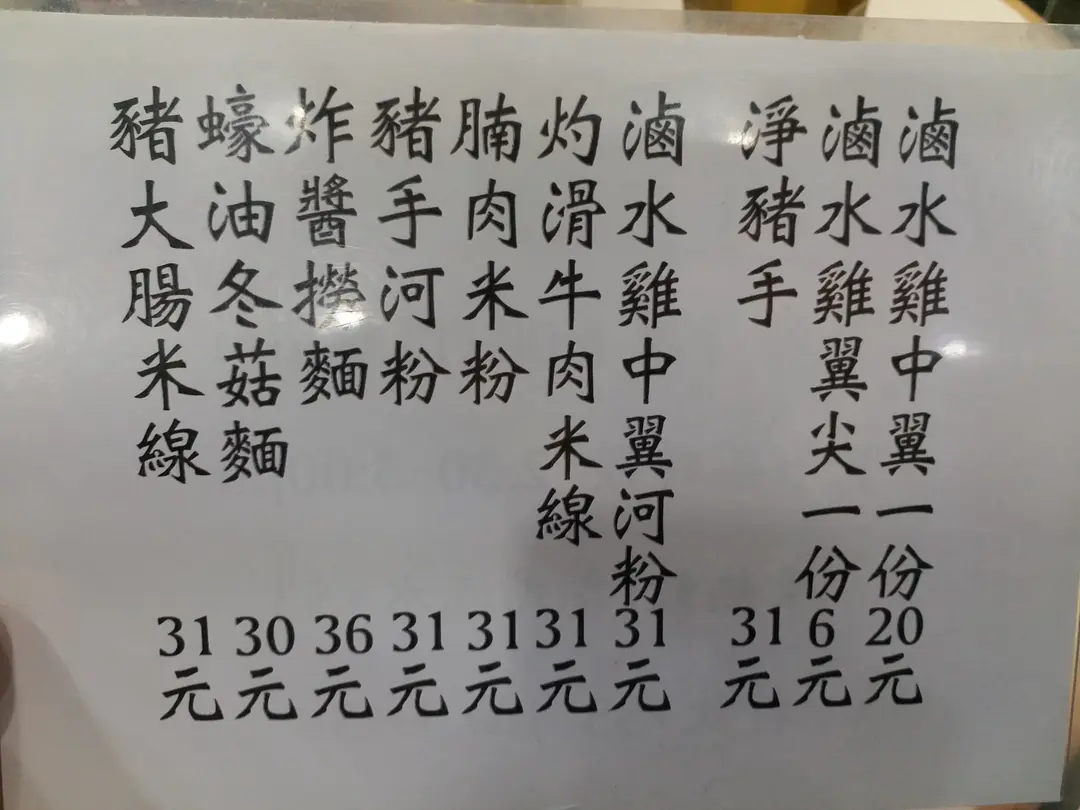 滷水雞中翼一份20元
滷水雞翼尖一份6元
淨豬手31元
滷水雞中翼河粉31元
灼滑牛肉米線31元
腩肉米粉31元
豬手河粉31元
炸醬撈麵36元
蠔油冬菇麵30元
豬大腸米線31元